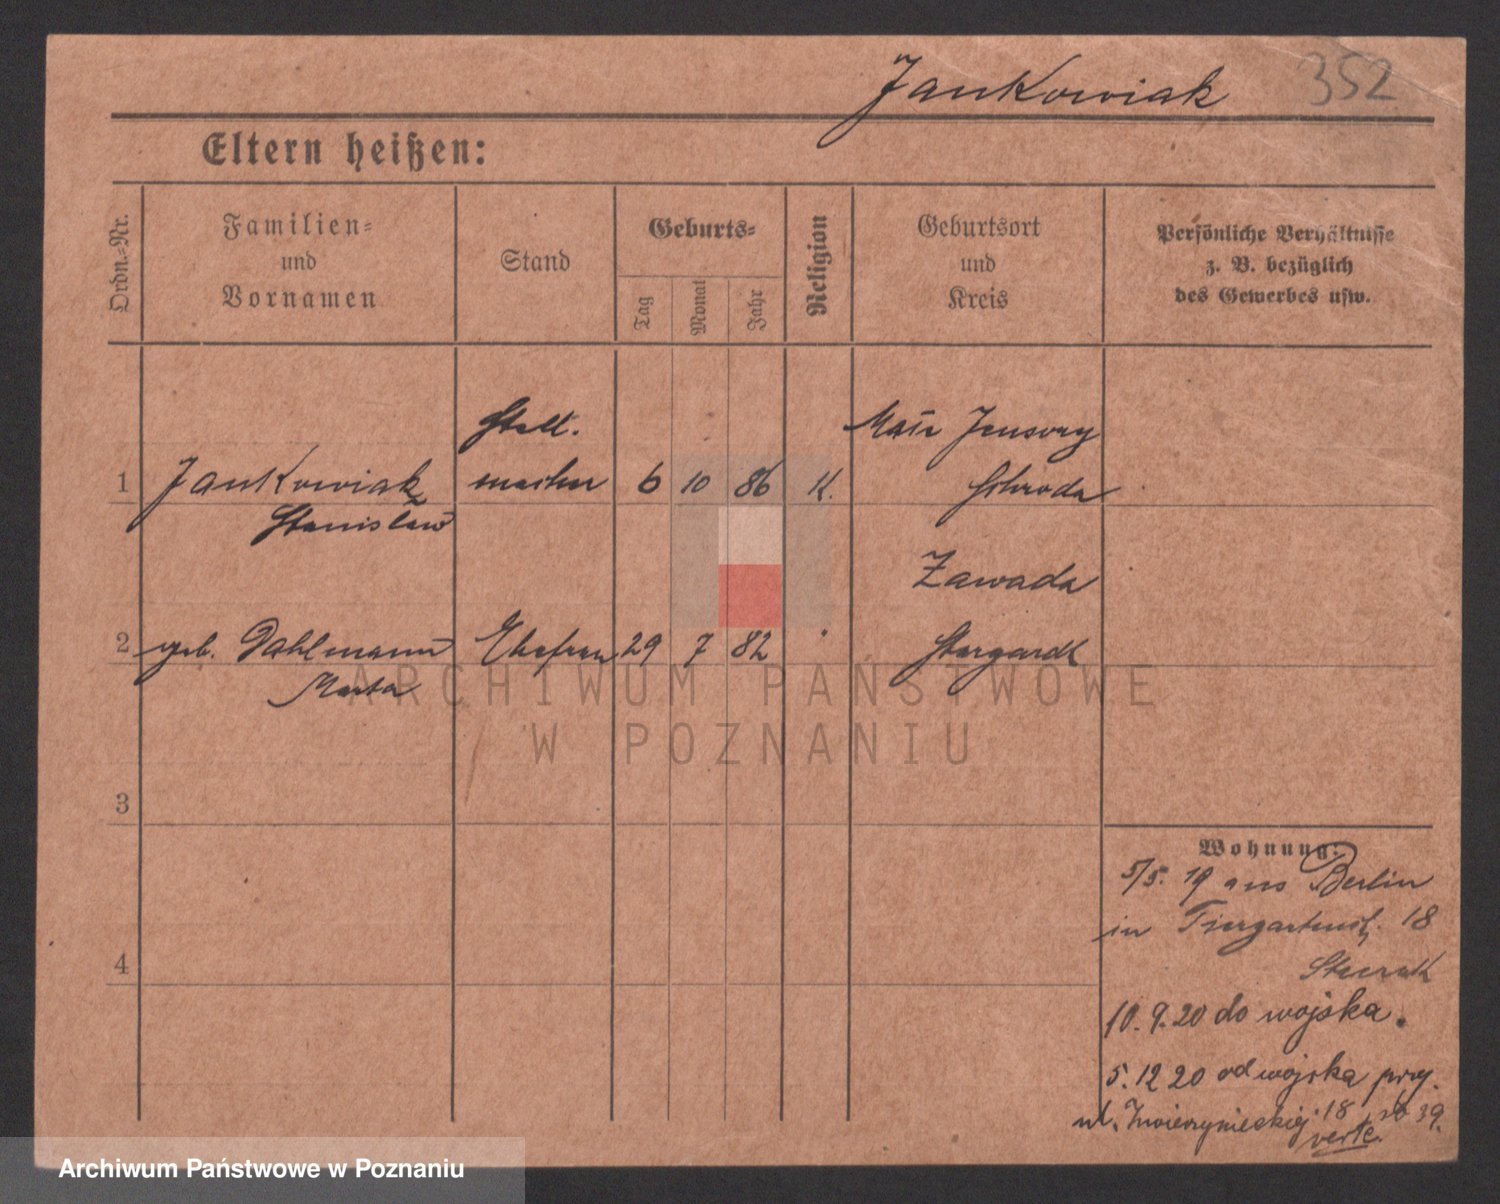 Jankowiak 352
Eltern heißen:
Ordn.-Nr.
Familien-
und
Vornamen
Stand
Geburts-
Tag
Monat
Jahr
Religion
Geburtsort
und
Kreis
Persönliche Verhältnisse
z. B. bezüglich
des Gewerbes usw.
Stell.
1 Jankowiak macher 6 10 86 K. Schroda
Stanislaw
Zawada
2 geb. Dahlmann Ehefrau 29 7 82 " Stargardt
Marta
ARCHIWUM PAŃSTWOWE
W POZNANIU
3
4
Wohnung:
5/5. 19 aus Berlin
in Tiergartenstr. 18
10. 9. 20 do wojska.
5. 12 20 od wojska prz.
ul. Zwierzynieckiej 18 39.
verte.
Archiwum Państwowe w Poznaniu